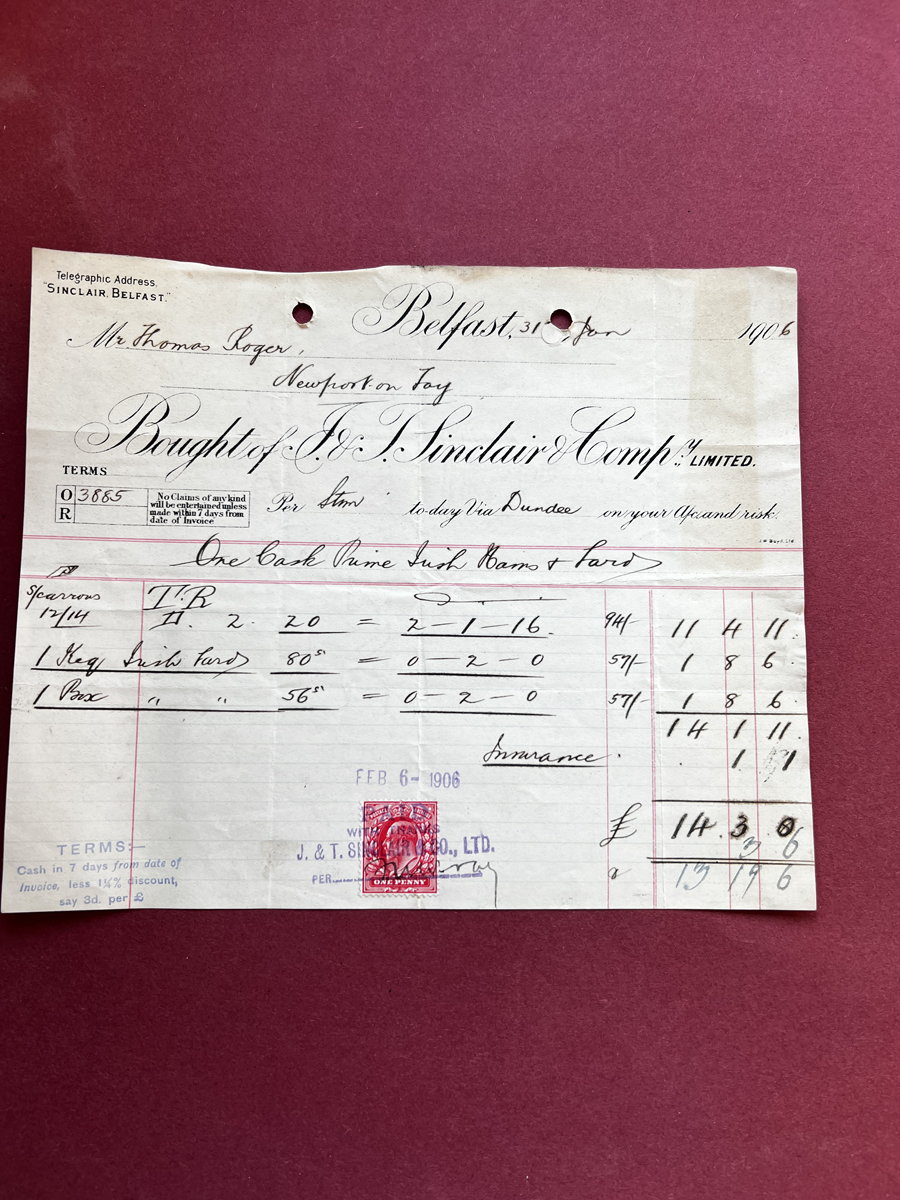 Telegraphic Address,
"SINCLAIR, BELFAST."
Belfast, 31st Jan 1906
Mr. Thomas Roger,
Newport-on Tay
Bought of J. & T. Sinclair & Compy., LIMITED.
TERMS
O 3885
R
No Claims of any kind
will be entertained unless
made within 7 days from
date of Invoice
Per Stmr to-day Via Dundee on your A/c. and risk.
One Cask Prime Irish Hams & Lard
T.R
12/14 2. 20 = 2-1-16. 94/- 11 4 11.
1 Keg Irish Lard 80s = 0-2-0 57/- 1 8 6.
1 Box " " 56s = 0-2-0 57/- 1 8 6.
14 1 11.
Insurance. 1 1
FEB 6- 1906
£ 14. 3. 0
3 6
13 19 6
WITH THANKS
J. & T. SINCLAIR & CO., LTD.
PER
ONE PENNY
TERMS:-
Cash in 7 days from date of
Invoice, less 1¼% discount,
say 3d. per £